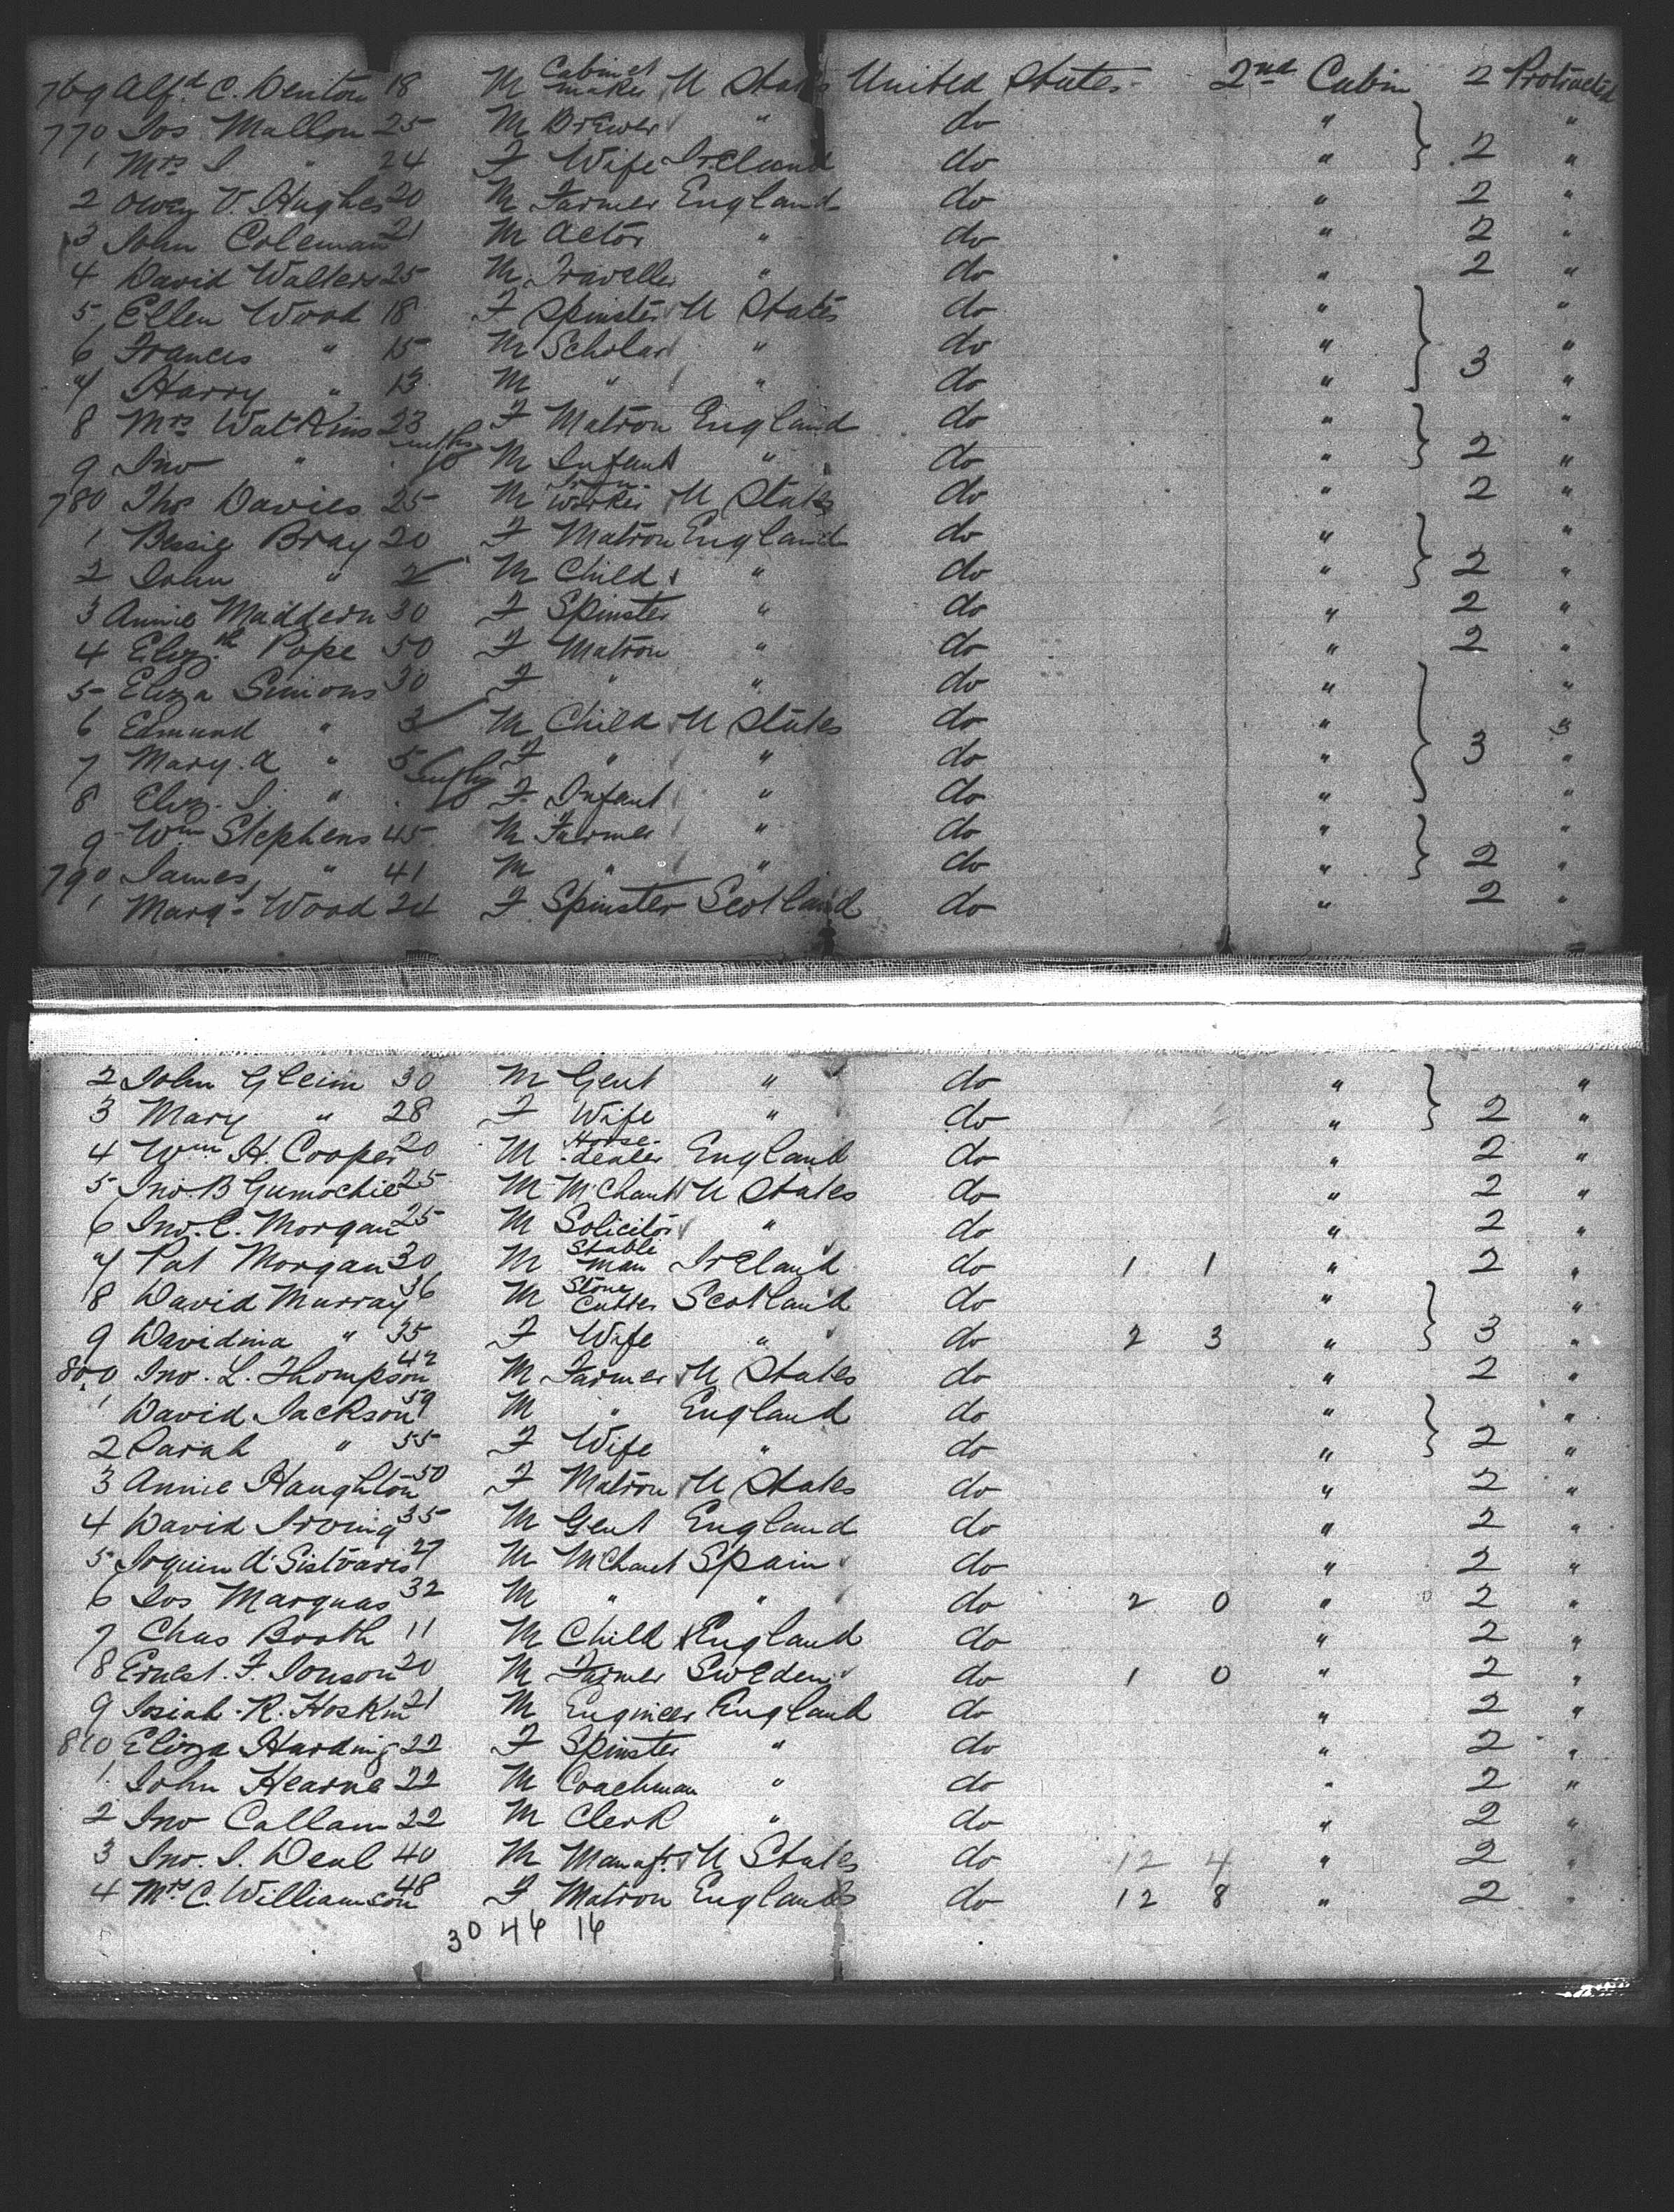 769 Alf.d C. Denton 18 M Cabinet maker U States United States 2nd Cabin 2 Protracted
770 Jos. Mallon 25 M Brewer " do " "
1 Mrs J. " 24 F Wife Ireland do " } 2 "
2 Owen V. Hughes 20 M Farmer England do " 2 "
3 John Coleman 21 M Actor " do " 2 "
4 David Walters 25 M Traveller " do " 2 "
5 Ellen Wood 18 F Spinster U States do " "
6 Frances " 15 M Scholar " do " } 3 "
7 Harry " 13 M " " do " "
8 Mrs Watkins 23 F Matron England do " "
9 Jno " 10 mths M Infant " do " } 2 "
780 Thos Davies 25 M Iron Worker U States do " 2 "
1 Bessie Bray 20 F Matron England do " "
2 John " 2 M Child " do " } 2 "
3 Annie Maddern 30 F Spinster " do " 2 "
4 Eliz.th Pope 50 F Matron " do " 2 "
5 Eliza Simons 30 F " " do " "
6 Edmund " 3 M Child U States do " "
7 Mary. A " 5 F " " do " } 3 "
8 Eliz. J. " 10 mths F Infant " do " "
9 Wm Stephens 45 M Farmer " do " "
790 James " 41 M " " do " } 2 "
1 Margt Wood 24 F Spinster Scotland do " 2 "
2 John Gleim 30 M Gent " do " "
3 Mary " 28 F Wife " do " } 2 "
4 Wm H. Cooper 20 M Horse-dealer England do " 2 "
5 Jno. B Gumochie 25 M MChant U States do " 2 "
6 Jno. C. Morgan 25 M Solicitor " do " 2 "
7 Pat Morgan 30 M Stable man Ireland do 1 1 " 2 "
8 David Murray 36 M Stone Cutter Scotland do " "
9 Davidina " 35 F Wife " do 2 3 " } 3 "
800 Jno. L. Thompson 42 M Farmer U States do " 2 "
1 David Jackson 59 M " England do " "
2 Sarah " 55 F Wife " do " } 2 "
3 Annie Haughton 50 F Matron U States do " 2 "
4 David Irving 35 M Gent England do " 2 "
5 Joquim d' Sistovaris 27 M MChant Spain do " 2 "
6 Jos Marquas 32 M " " do 2 0 " 2 "
7 Chas Booth 11 M Child England do " 2 "
8 Ernest. F. Jonson 20 M Farmer Sweden do 1 0 " 2 "
9 Josiah. R. Hoskin 21 M Engineer England do " 2 "
810 Eliza Harding 22 F Spinster " do " 2 "
1 John Hearne 22 M Coachman " do " 2 "
2 Jno Callam 22 M Clerk " do " 2 "
3 Jno. J. Deal 40 M Manaft. U States do 12 4 " 2 "
4 Mrs C. Williamson 48 F Matron England do 12 8 " 2 "
30 46 16